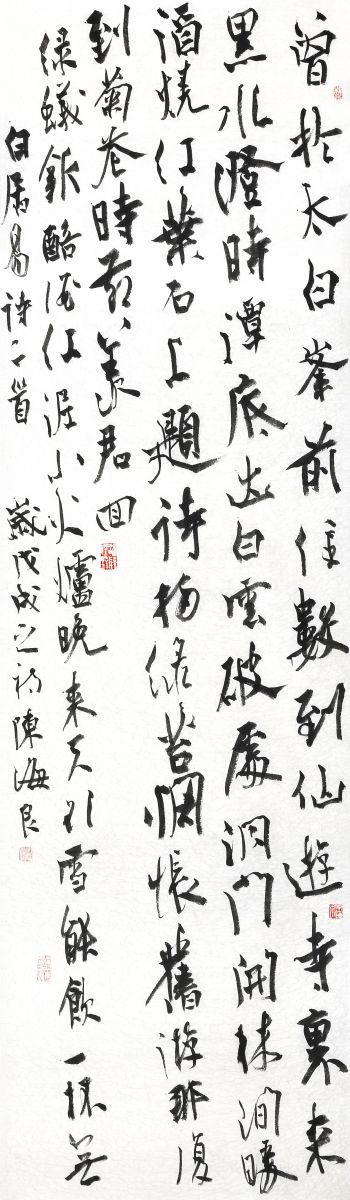 曾於太白峯前住數到仙遊寺裏来
黑水澄時潭底出白雲破處洞門開林间暖
酒燒红葉石上題诗掃绿苔惆悵舊游那復
到菊花時节羡君回
绿蟻新醅酒红泥小火爐晚来天欲雪能飲一杯無
白居易诗二首 歲戊戌之初陳海良